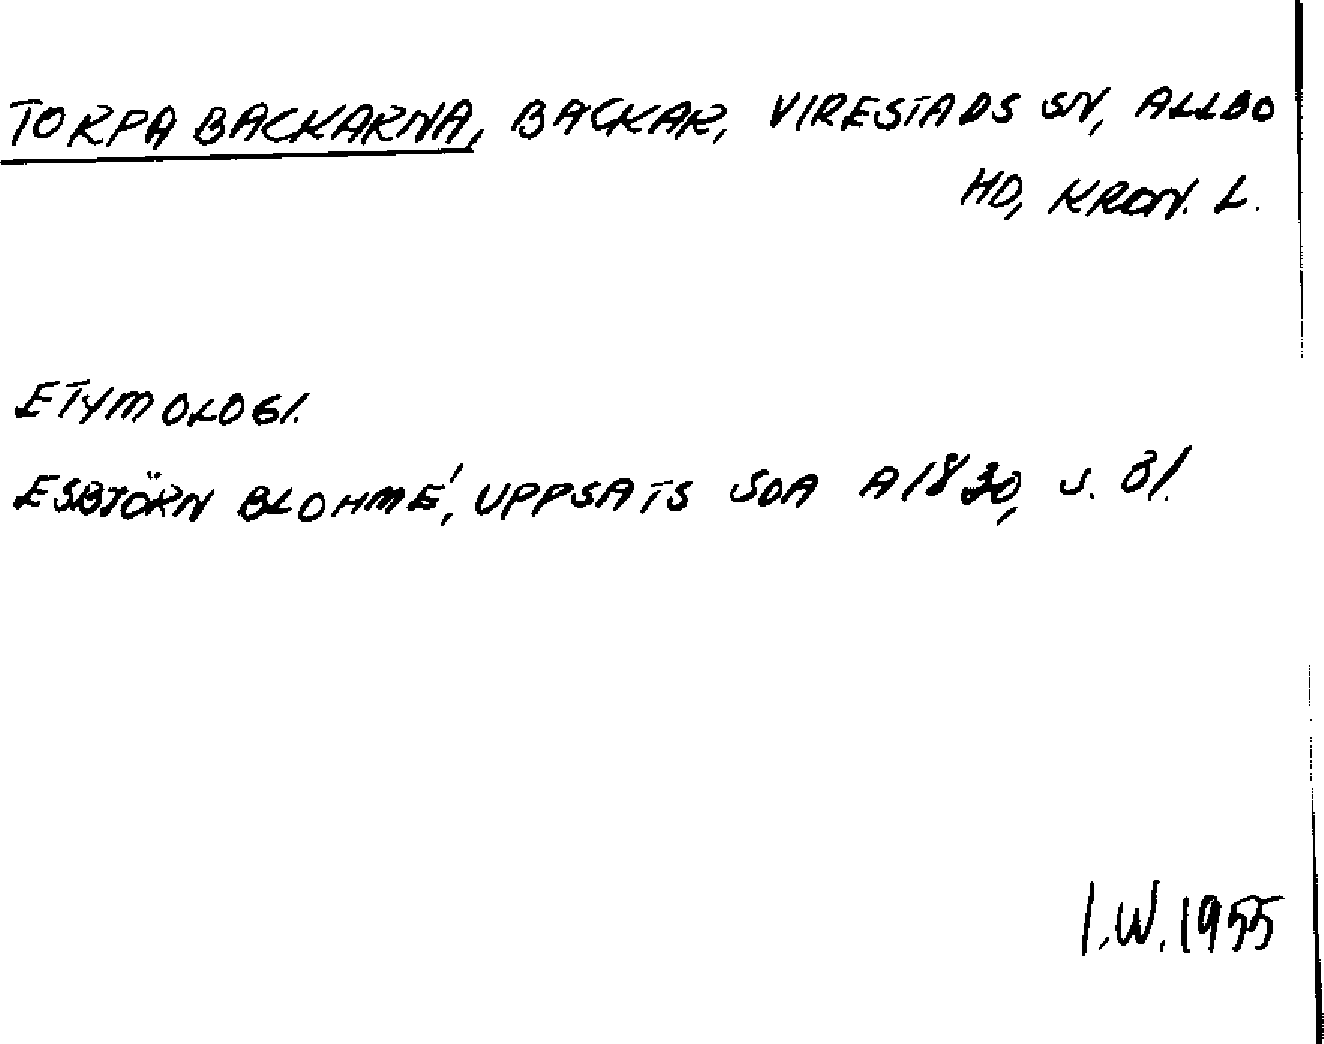 TORPA BACKARNA, BACKAR, VIRESTADS SN, ALLBO
HD, KRON. L.
ETYMOLOGI.
ESBJÖRN BLOHMÉ, UPPSATS SOA A 1830, S. 81.
I.W. 1955